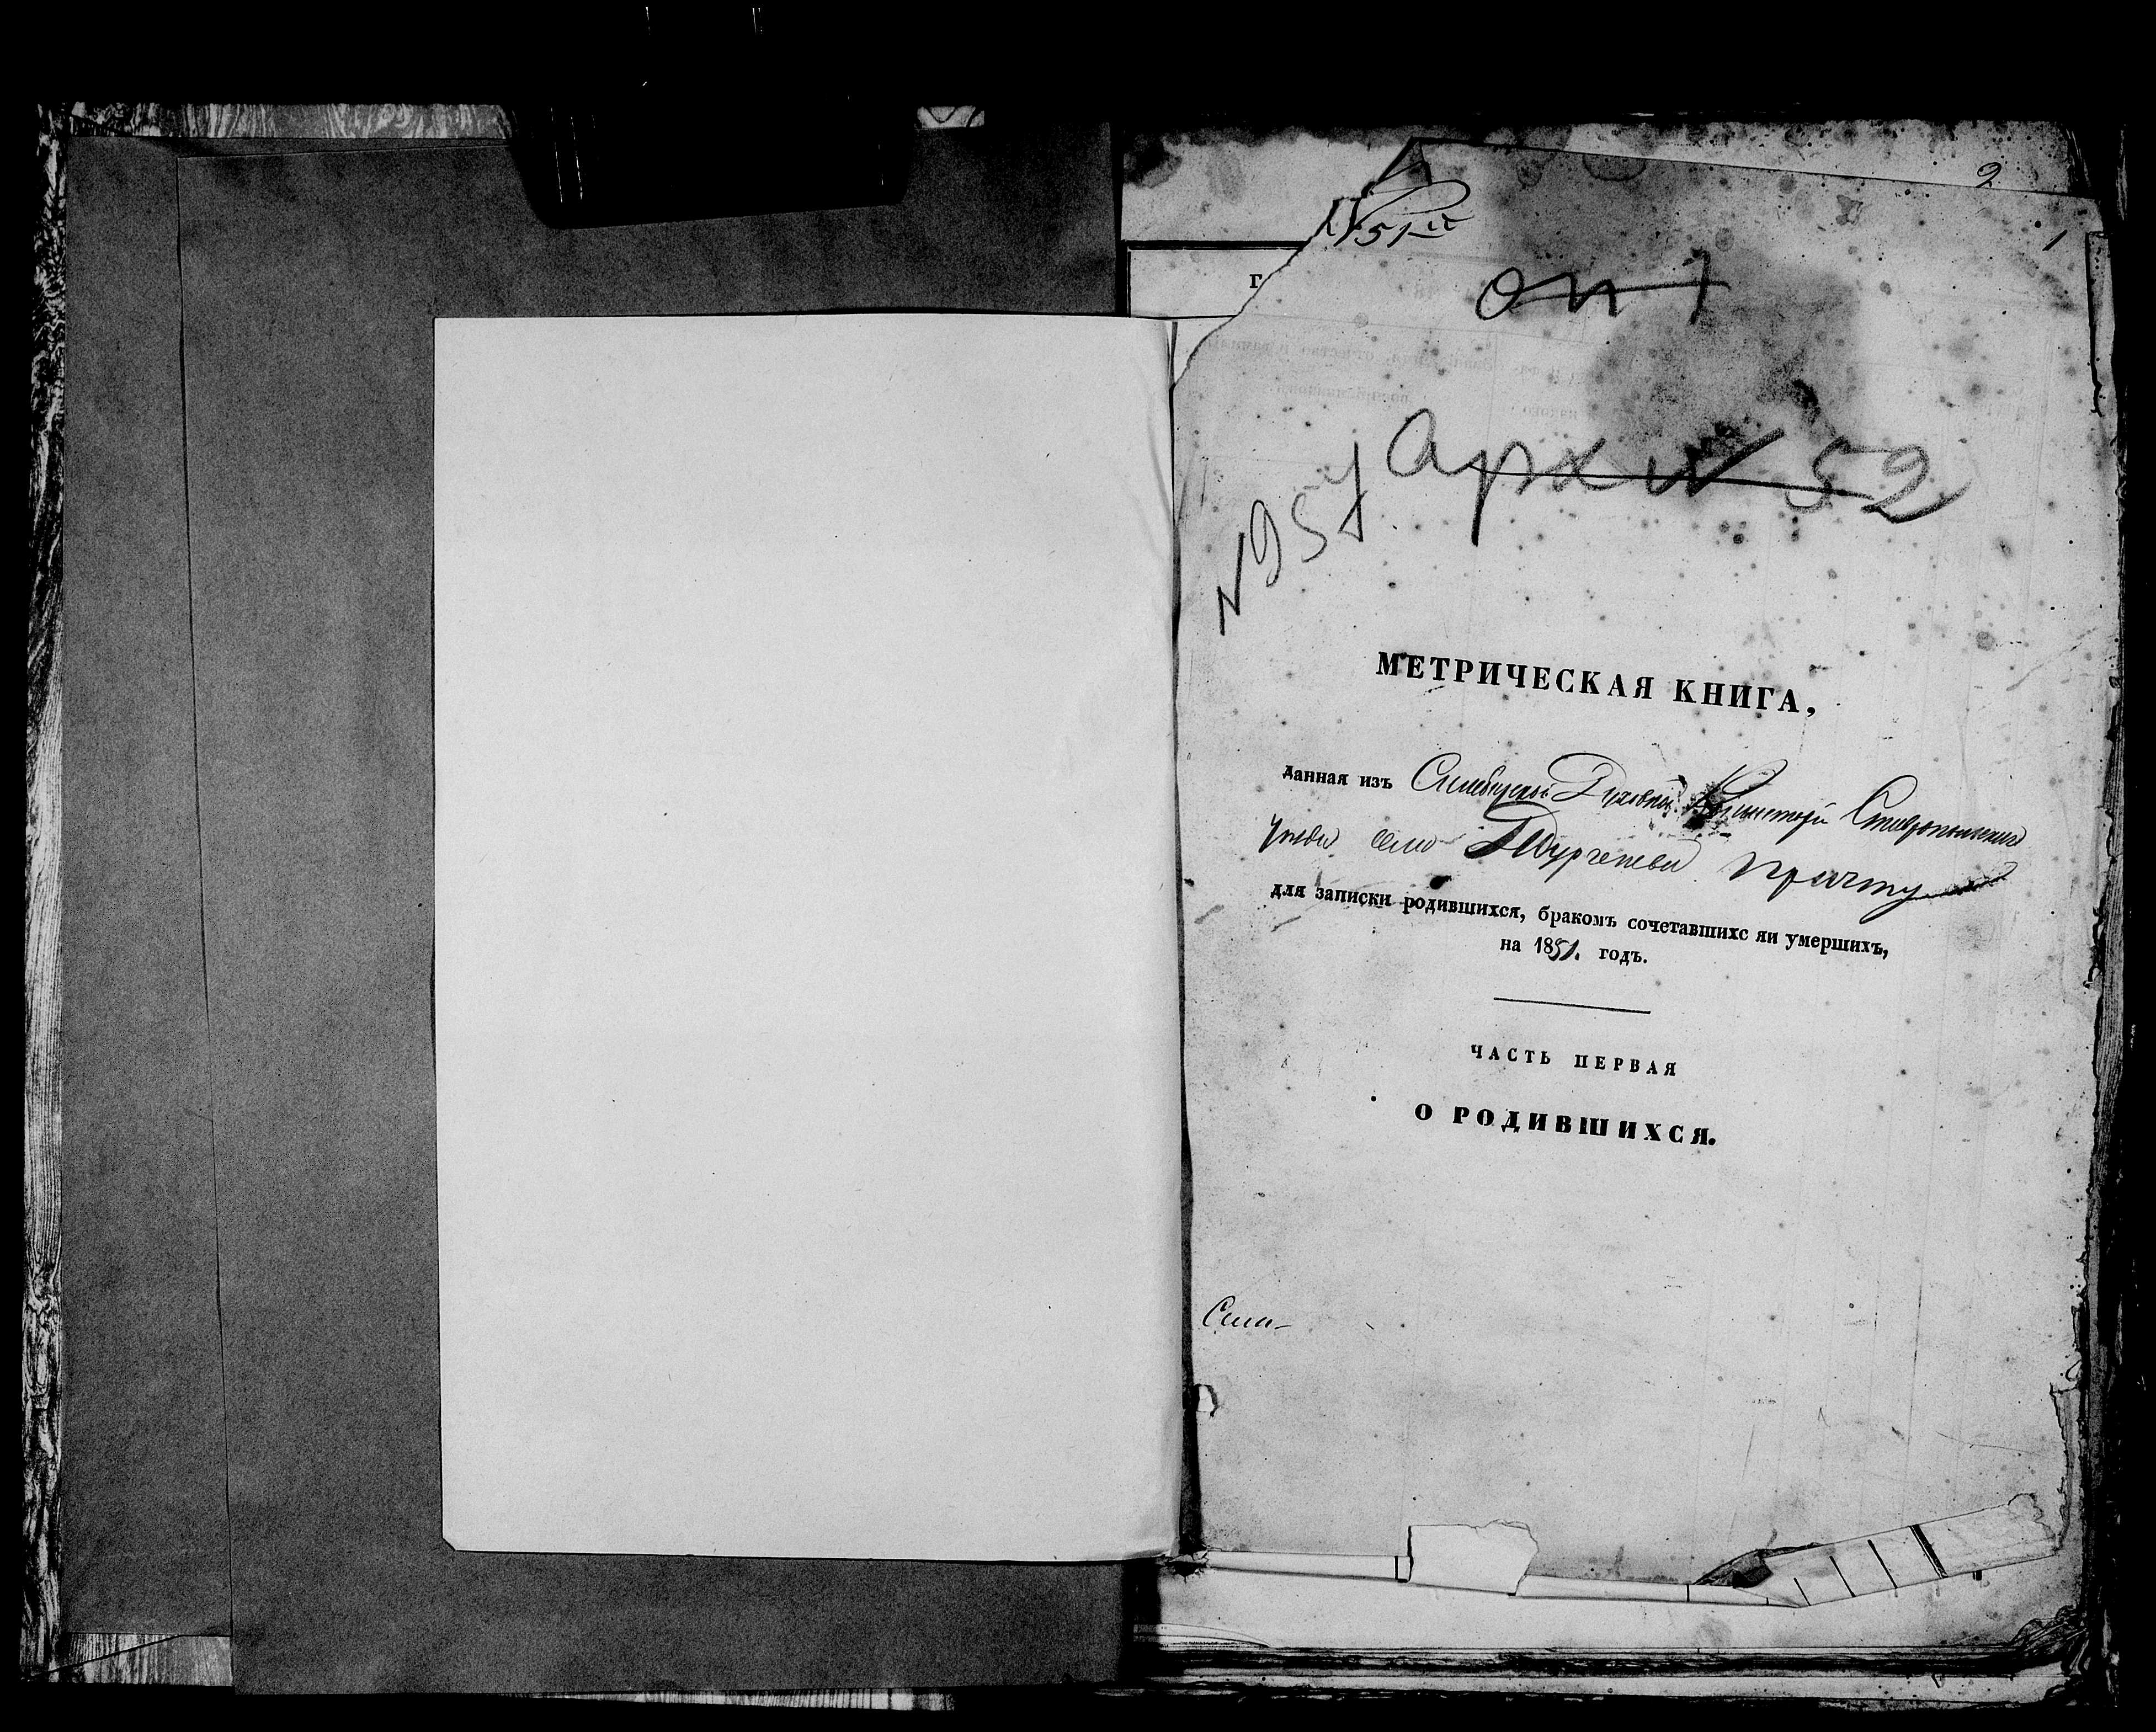 2
1
51й
Г
оп 1
арх № 52
N 957
МЕТРИЧЕСКАЯ КНИГА,
данная изъ Симбирской Духовной Консисторіи Ставропольскаго
уезда села Тургенева причту
для записки родившихся, бракомъ сочетавшихс яи умершихъ,
на 1851. годъ.
ЧАСТЬ ПЕРВАЯ
О РОДИВШИХСЯ.